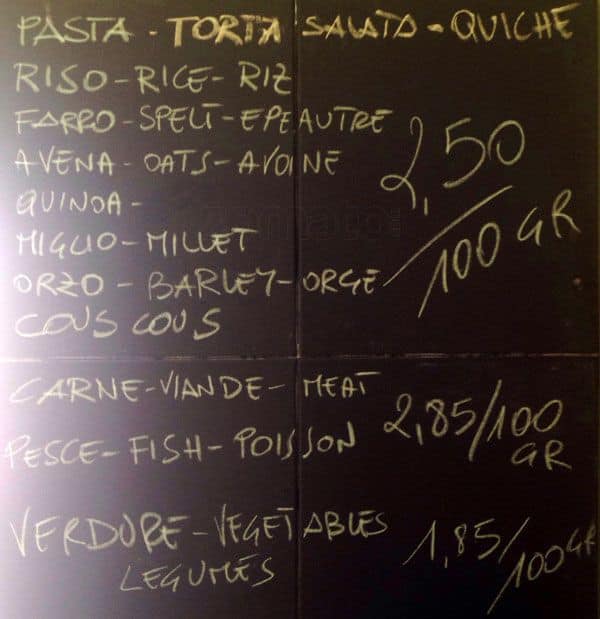 PASTA - TORTA SALATO - QUICHE
RISO - RICE - RIZ
FARRO - SPELT - EPEAUTRE
AVENA - OATS - AVOINE
QUINOA -
MIGLIO - MILLET
ORZO - BARLEY - ORGE
COUS COUS
2,50/100 GR
CARNE - VIANDE - MEAT
PESCE - FISH - POISSON
2,85/100 GR
VERDURE - VEGETABLES
LEGUMES
1,85/100 GR